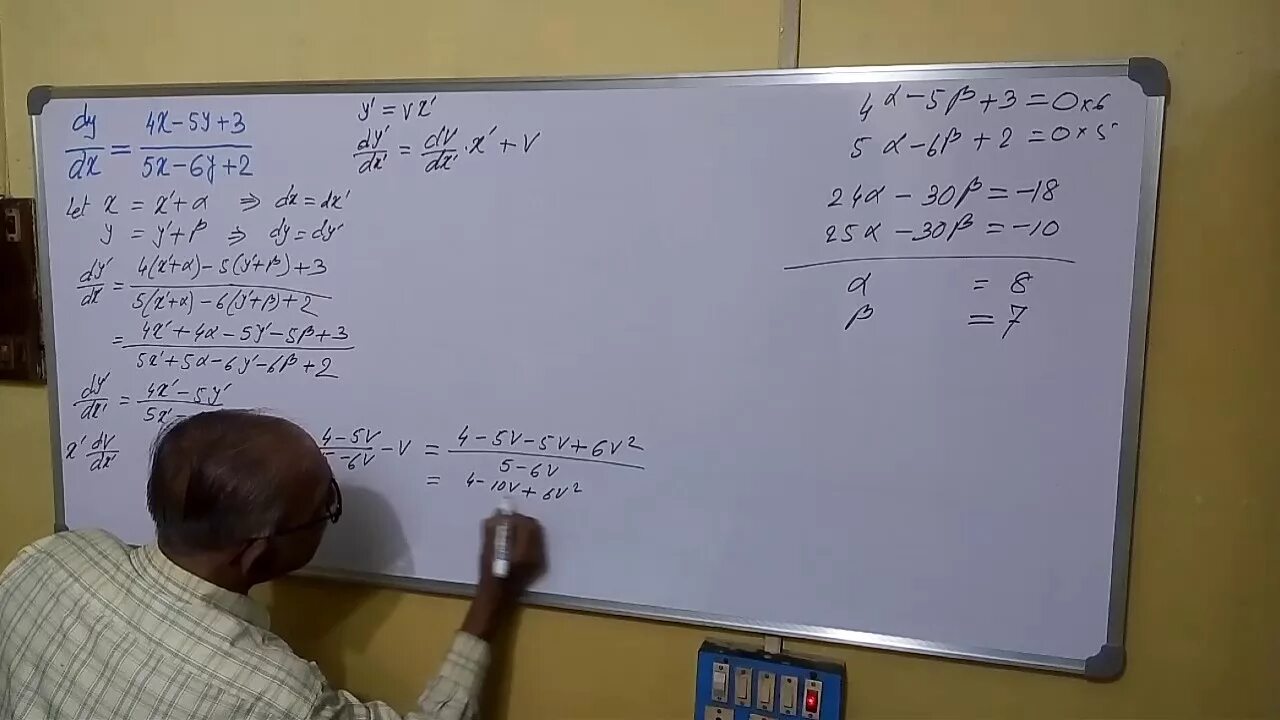 dy/dx = (4x-5y+3)/(5x-6y+2)
Let x = x'+α ⇒ dx = dx'
y = y'+β ⇒ dy = dy'
dy'/dx' = (4(x'+α)-5(y'+β)+3)/(5(x'+α)-6(y'+β)+2)
= (4x'+4α-5y'-5β+3)/(5x'+5α-6y'-6β+2)
dy'/dx' = (4x'-5y')/(5x'-
x' dv/dx'
(4-5v)/(-6v) -v = (4-5v-5v+6v²)/(5-6v)
= 4-10v+6v²
y' = vx'
dy'/dx' = dv/dx' · x' + v
4α-5β+3 = 0×6
5α-6β+2 = 0×5
24α-30β = -18
25α-30β = -10
α = 8
β = 7